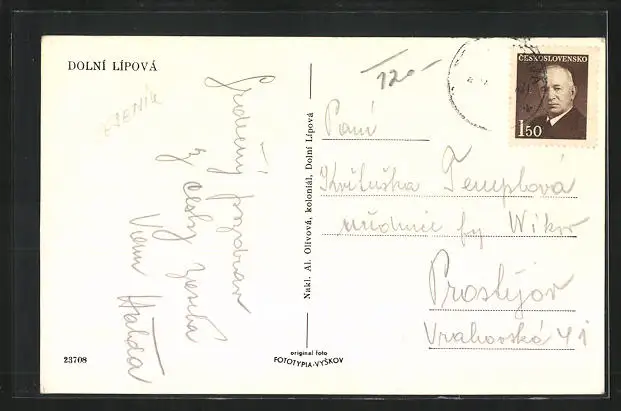 DOLNÍ LÍPOVÁ
Srdečný pozdrav
z cesty zasílá
Vám
120-
ČESKOSLOVENSKO
1 50
Paní
Květuška Templová
úřednice fy Wikov
Prostějov
Vrahovská 41
Nakl. Al. Olivová, koloniál, Dolní Lípová
23708
original foto
FOTOTYPIA-VYŠKOV